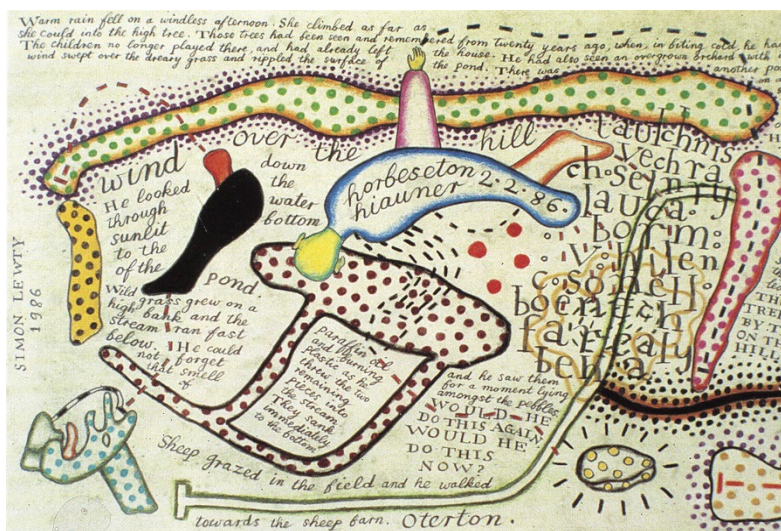 Warm rain fell on a windless afternoon. She climbed as far as
she could into the high tree. Those trees had been seen and remembered from twenty years ago, when, in biting cold, he
The children no longer played there, and had already left the house. He had also seen an overgrown orchard with
wind swept over the dreary grass and rippled the surface of the pond. There was another
wind over the hill
He looked
through
sunlit
to the
of the
down
the
water
bottom
pond.
horbeseton
hiauner 2.2.86.
taulchnis
vechra
ch. seinry
lauca.
borim:
v. nlen
c. somell:
boenfch
farrealy
benla
Wild grass grew on a
high bank and the
stream ran fast
below. He could
not forget
that smell
of
paraffin oil
and burning
plastic as he
threw the two
remaining
pieces into
the stream.
They sank
immediately
to the bottom
and he saw them
for a moment lying
amongst the pebbles.
WOULD HE
DO THIS AGAIN
WOULD HE
DO THIS
NOW?
Sheep grazed in the field and he walked
towards the sheep barn. Oterton.
THE
TREE
BY T
ON TH
HILL
SIMON LEWTY
1986